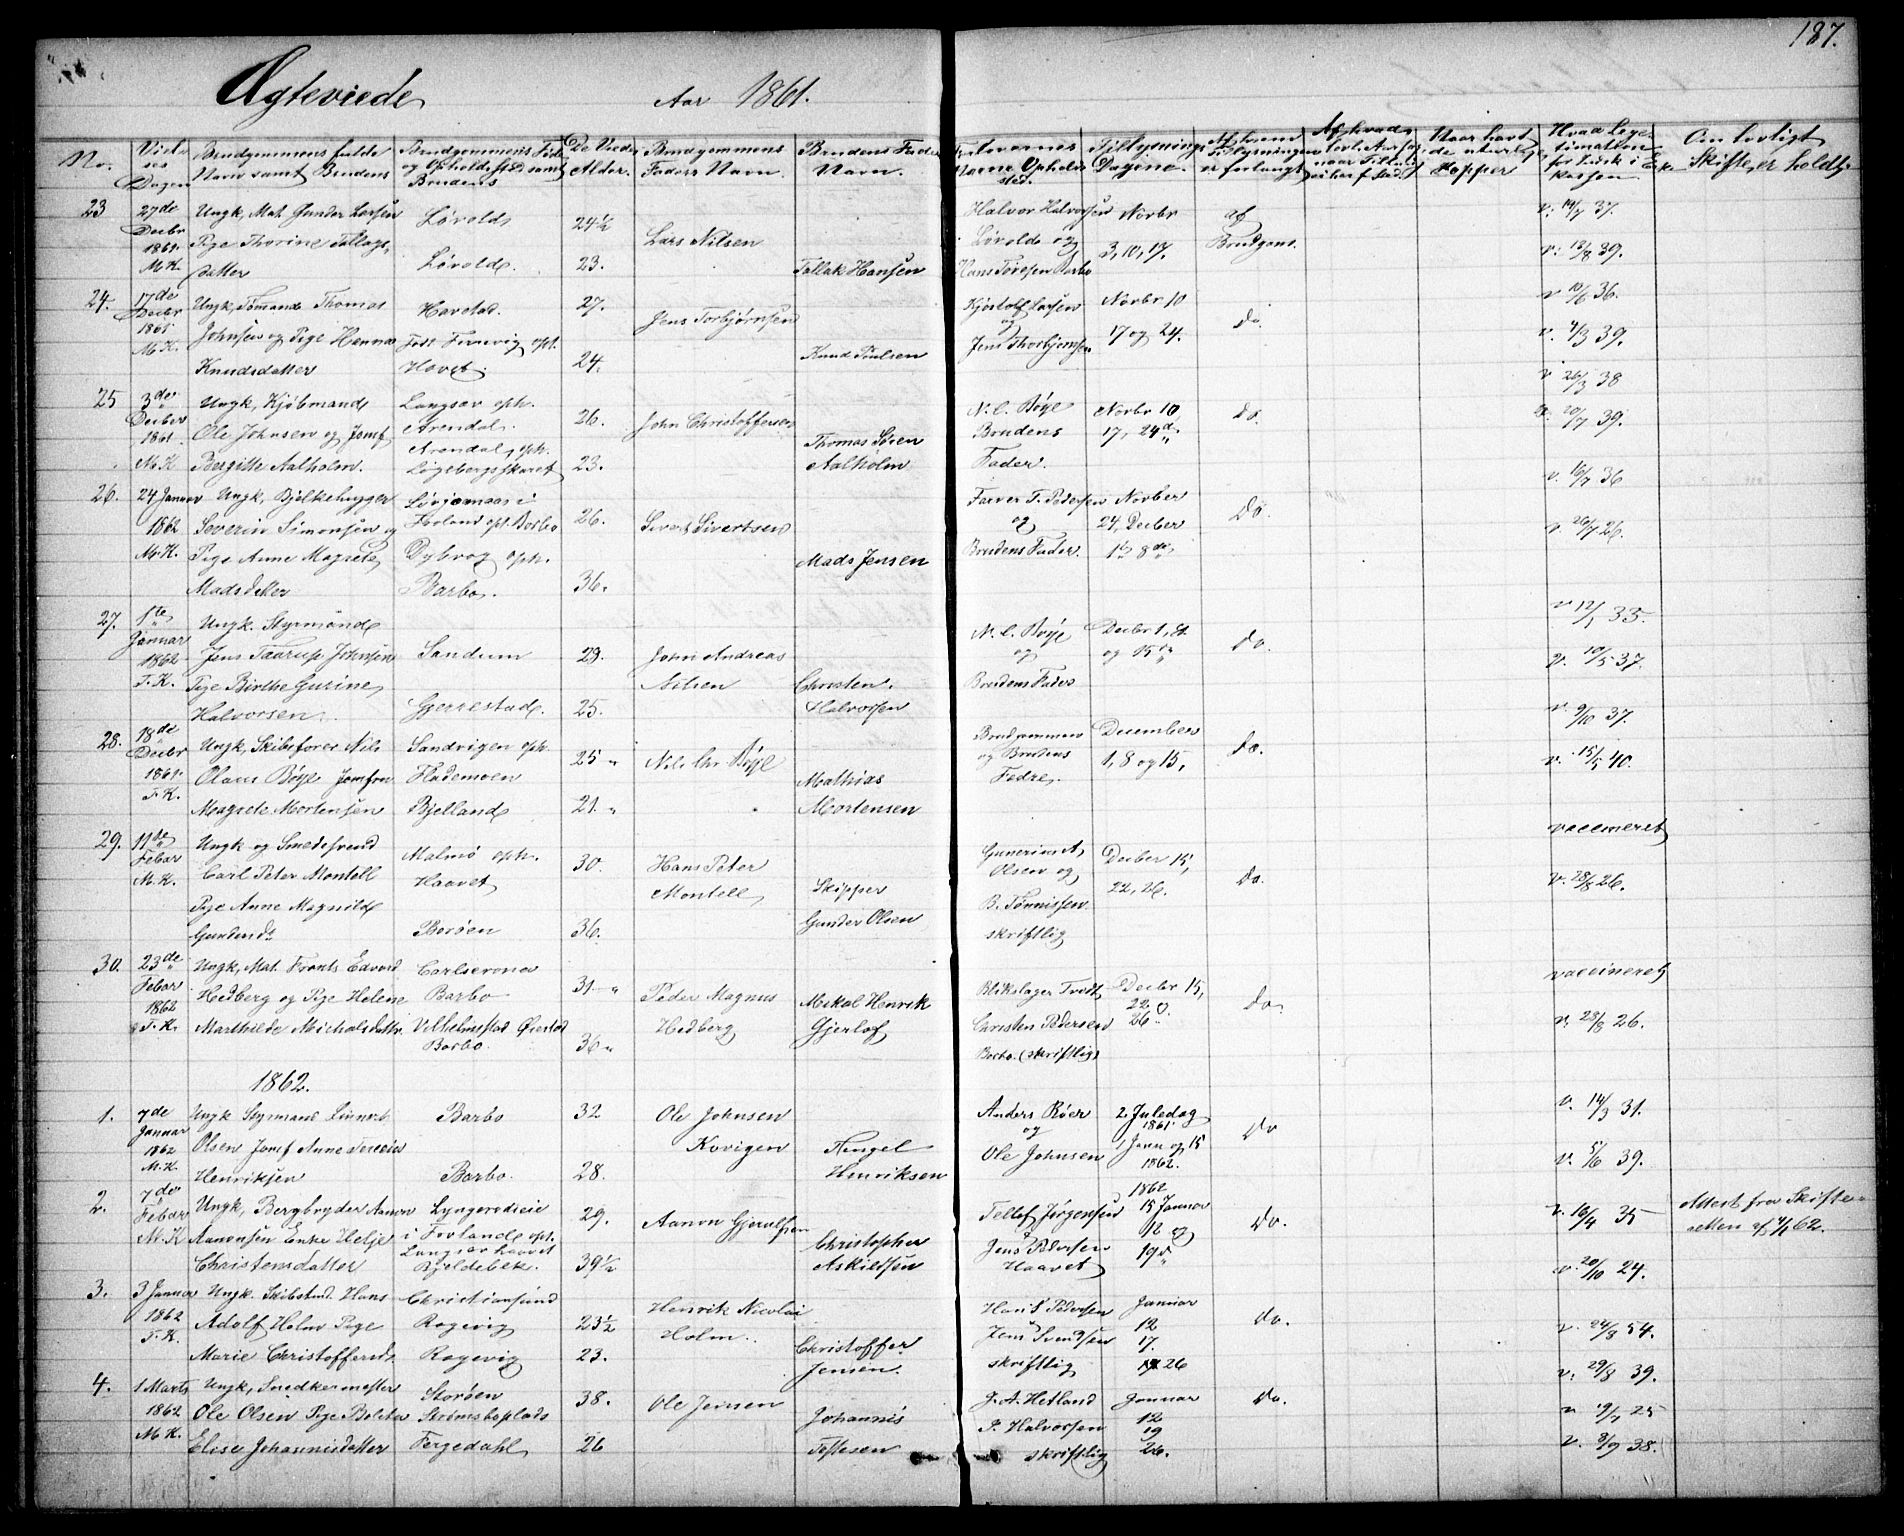 187.
Ægteviede Aar 1861.
No. Vielsesdagen Brudgommens fulde Navn samt Brudens Brudgommens Føde og Opholdsst. samt Brudens De Viedes Alder. Brudgommens Faders Navn. Brudens Faders Navn. Forlovernes Navne Opholdssted Tillysnings Dagene. Af hvem Tillysningen er forlangt Naar havt de naturlige Kopper Om lovligt Skifte er holdt
23 27de Decbr 1861. M.K. Ungk. Mat. Gunder Larsen
Pige Thorine Tallags
datter
Løvold
Løvold.
24½
23.
Lars Nilsen
Tallak Hansen
Halvor Halvorsen
Løvold og
Hans Tøresen Barbo
Novbr
3, 10, 17.
af
Brudgom.
v: 14/7 37.
v: 13/8 39.
24. 17de Decbr 1861 M.K. Ungk. Tømmand Thomas
Johnsen og Pige Hanna
Knudsdatter
Havstad.
født Finnvig oph.
Havet.
27.
24.
Jens Torbjørnsen
Knud Poulsen
Kjøstolf Larsen
og
Jens Thorbjørnsen
Novbr 10
17 og 24.
do.
v 10/6 36.
v. 4/3 39.
25 3de Decber 1861. M.K Ungk. Kjøbmand
Ole Johnsen og Jomf.
Bergitte Aalholm.
Langsæ oph.
Arendal.
Arendal, oph.
Løgebergsskaret
26.
23.
John Christoffersen
Thomas Søren
Aalholm
N. C. Bøye
Brudens
Fader.
Novbr 10,
17, 24de
do.
v 26/3 38
v. 20/7 39.
26. 24 Januar 1862 M.K. Ungk. Bjelkehugger
Severin Simonsen og
Pige Anne Magrete
Madsdatter
Froland oph. Barbo
Dybvog oph.
Barbo.
26.
36.
Sivert Sivertsen
Mads Jensen
Farver T. Pedersen
og
Brudens Fader.
Novber
24, Decber
1, 8de
do.
v. 16/7 36
v. 26/7 26.
27. 1te Januar 1862 T.K. Ungk. Styrmand
Jens Taarup Johnsen
Pige Birthe Gurine
Halvorsen.
Sandum
Gjerrestad.
29.
25.
John Andreas
Nilsen
Christen
Halvorsen
N. C. Bøye
og
Brudens Fader
Decbr 1, 8.
og 15de
do.
v 12/1 33.
v. 10/5 37.
28. 18de Decbr 1861. T.K. Ungk. Skibsfører Nils
Olaus Bøye Jomfru
Magrete Mortensen
Sandvigen oph.
Flademoen
Bjelland
25 "
21. "
Nils Chr. Bøye
Mathias
Mortensen
Brudgommens
og Brudens
Fedre.
December
1, 8 og 15,
do.
v 9/10 37.
v. 15/5 40.
29. 11te Febar M.K. Ungk og Smedesvend
Carl Peter Montell
Pige Anne Magnild
Gundersd.
Malmö oph.
Haavet
Borøen
30.
36.
Hans Peter
Montell
Skipper
Gunder Olsen
Olsen og
B. Tønnissen
skriftlig
Decber 15,
22, 26.
do.
vaccineret
v. 28/8 26.
30. 23de Febar 1862 T.K. Ungk. Mat. Frants Edvard
Hedberg og Pige Helene
Marthilde Michalsdatter
Carlscrona
Barbo
Vilhelmstad Øiestad
Barbo.
31 "
36 "
Peder Magnus
Hedberg
Mikal Henrik
Gjerløf
Blikslager Tvedt
Christen Pedersen
Barbo. (skriftlig)
Decbr 15,
22 og
26
do.
vaccineret
v. 28/8 26.
1862.
1. 7de Januar 1862 M.K. Ungk Styrmand Linnert
Olsen Jomf Anne Terecia
Henriksen
Barbo
Barbo.
32
28.
Ole Johnsen
Kovigen
Tengel
Henriksen
Anders Röer
og
Ole Johnsen
2. Juledag
1861.
1 Janu og 15
1862.
do
v. 14/3 31.
v. 5/6 39.
2. 7de Febar M.K Ungk. Bergbryder Aanon
Aanonsen Enke Helje
Christensdatter
Lyngerødieie
i Frolands oph.
Langsæ haavet
Bjeldebek.
29.
39½
Aanon Gjerulfsen
Christopher
Askildsen
Tellef Jørgensen
Jens Pedersen
Haavet
1862
15 Januar
12 og
19de
do.
v. 16/4 35
v. 20/10 24.
Attest fra Skifte-
retten af 4/1 62.
3. 3 Januar 1862 T.K. Ungk. Skibstmd. Hans
Adolf Holm Pige
Marie Christoffersd.
Christiansund
Rægevig
Rægevig
23½
23.
Henrik Nicolai
Holm.
Christoffer
Jensen.
Hans Pedersen
Jens Svendsen
skriftlig
Januar
12
17.
26
do.
v. 24/8 54.
v. 29/8 39.
4. 1 Marts 1862 M.K. Ungk, Snedkermester
Ole Olsen Pige Boletta
Elise Johannisdatter
Storøen
Strømsboplads
Fergedahl
38.
26
Ole Jensen
Johannis
Tellesen
J. A. Hetland
P. Halvorsen
skriftlig
Januar
12
19
26.
do.
v 19/7 25
v. 8/9 38.